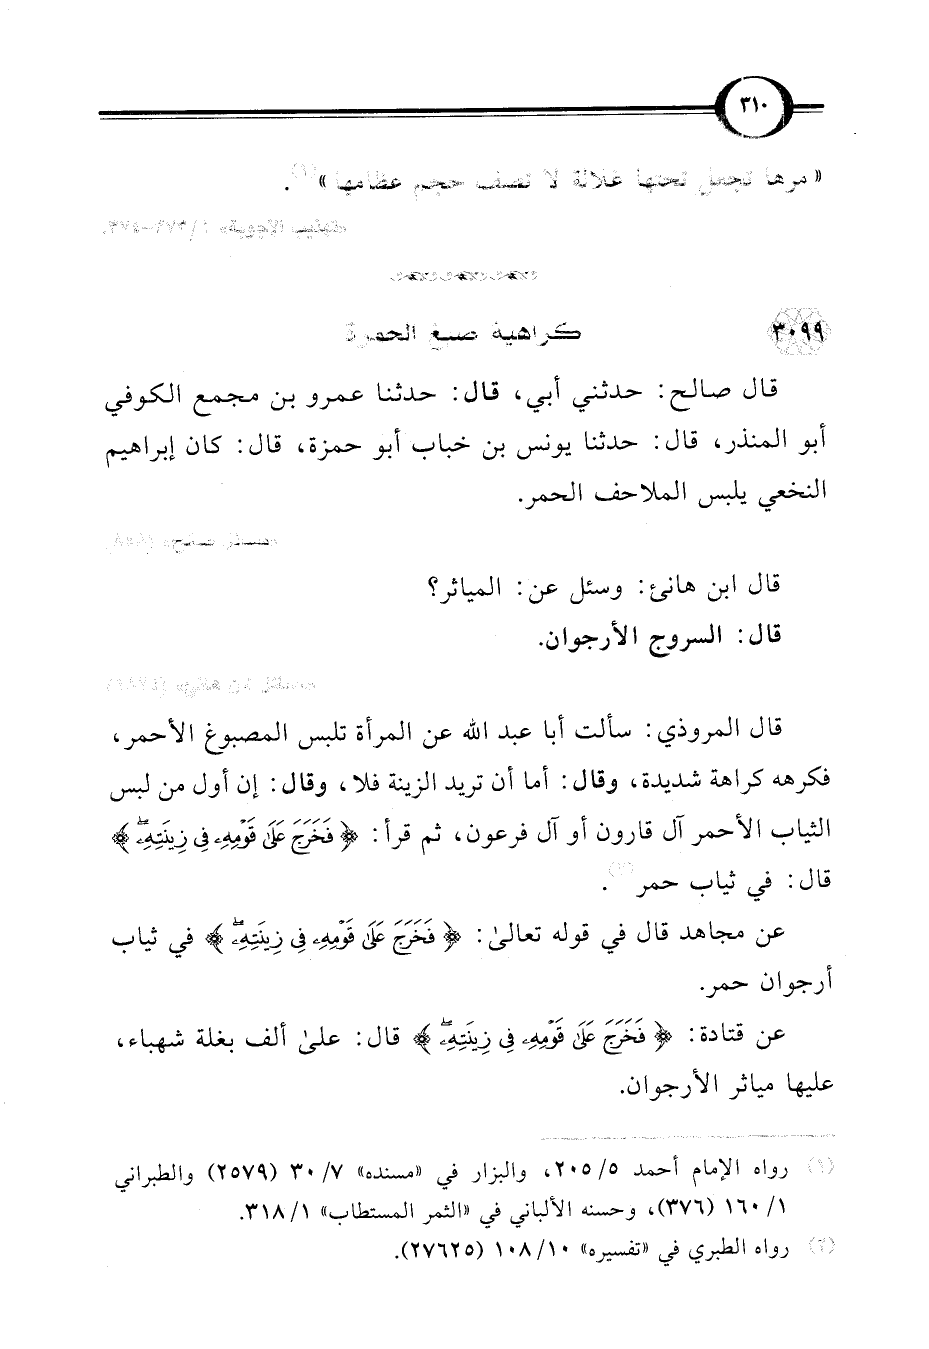 ٣١٠
« مرها تجعل تحتها غلالة لا تصف حجم عظامها »(١).
٣٠٩٩ كراهية صبغ الحمرة
قال صالح: حدثني أبي، قال: حدثنا عمرو بن مجمع الكوفي
أبو المنذر، قال: حدثنا يونس بن خباب أبو حمزة، قال: كان إبراهيم
النخعي يلبس الملاحف الحمر.
قال ابن هانئ: وسئل عن: المياثر؟
قال: السروج الأرجوان.
قال المروذي: سألت أبا عبد الله عن المرأة تلبس المصبوغ الأحمر،
فكرهه كراهة شديدة، وقال: أما أن تريد الزينة فلا، وقال: إن أول من لبس
الثياب الأحمر آل قارون أو آل فرعون، ثم قرأ: ﴿فَخَرَجَ عَلَىٰ قَوْمِهِۦ فِى زِينَتِهِۦۖ﴾
قال: في ثياب حمر(٢).
عن مجاهد قال في قوله تعالىٰ: ﴿فَخَرَجَ عَلَىٰ قَوْمِهِۦ فِى زِينَتِهِۦۖ﴾ في ثياب
أرجوان حمر.
عن قتادة: ﴿فَخَرَجَ عَلَىٰ قَوْمِهِۦ فِى زِينَتِهِۦۖ﴾ قال: علىٰ ألف بغلة شهباء،
عليها مياثر الأرجوان.
(١) رواه الإمام أحمد ٢٠٥/٥، والبزار في «مسنده» ٣٠/٧ (٢٥٧٩) والطبراني
١٦٠/١ (٣٧٦)، وحسنه الألباني في «الثمر المستطاب» ٣١٨/١.
(٢) رواه الطبري في «تفسيره» ١٠٨/١٠ (٢٧٦٢٥).